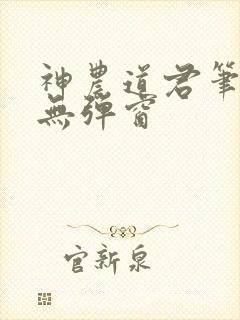 神農道君筆
無彈窗
官新泉